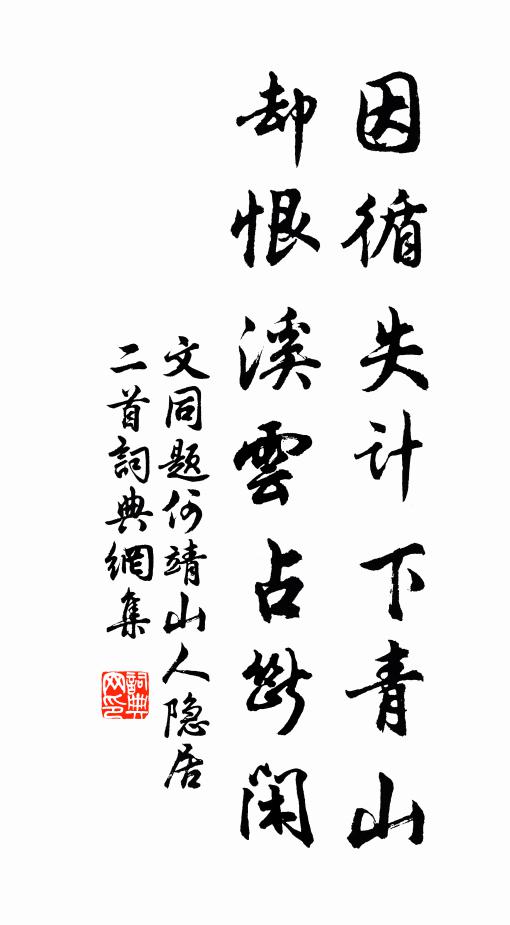 因循失计下青山
却恨溪雲占斷閑
文同题何靖山人隐居
二首詞典網集
詞典
网印